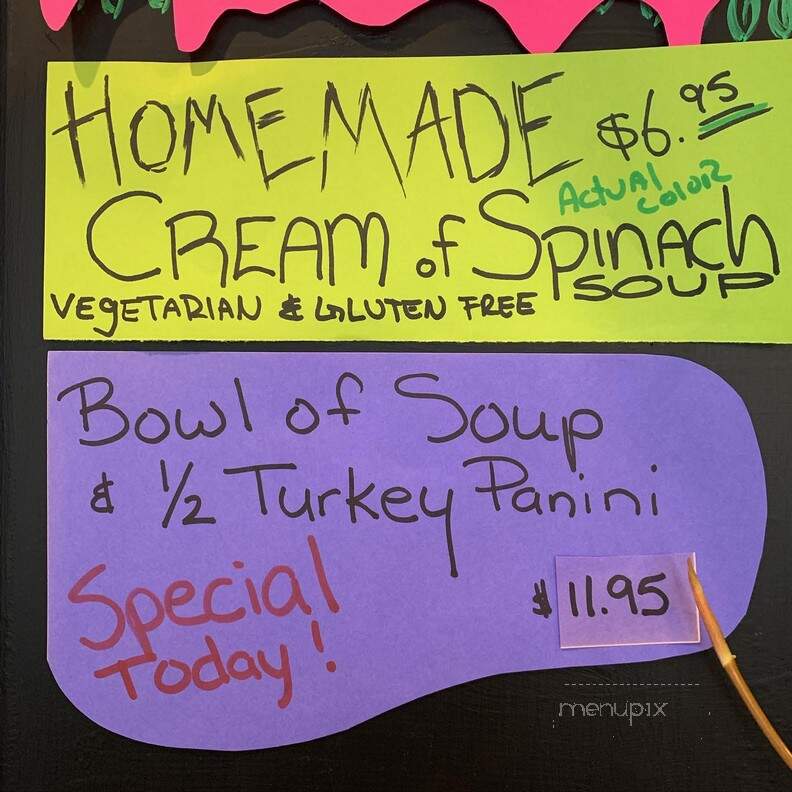 HOMEMADE $6.95
ACTUAL COLOR
CREAM of Spinach
SOUP
VEgETARIAN & GLUTEN FREE
Bowl of Soup
& 1/2 Turkey Panini
Special
Today!
$11.95
menupix